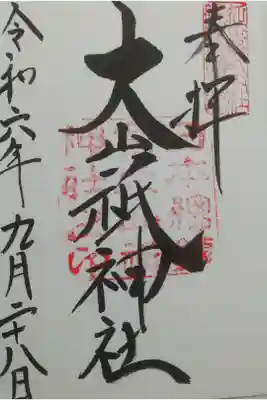 奉拝
大山祇神社
令和六年九月二十八日